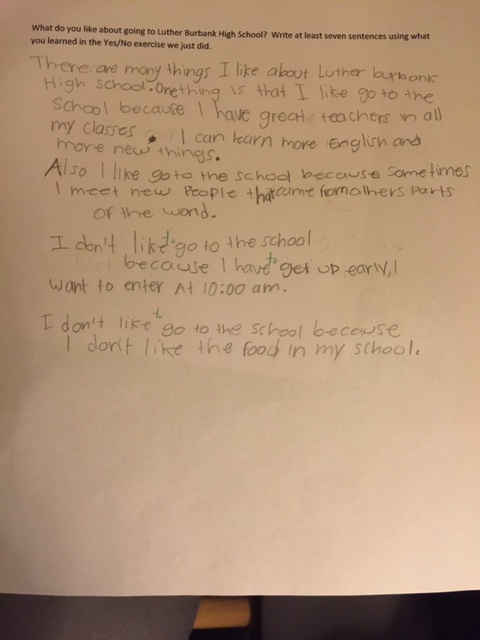 What do you like about going to Luther Burbank High School? Write at least seven sentences using what
you learned in the Yes/No exercise we just did.
There are many things I like about Luther burbank
High school. One thing is that I like go to the
school because I have great teachers in all
my classes. I can learn more English and
more new things.
Also I like go to the school because sometimes
I meet new People that came from others parts
of the world.
I don't like to go to the school
because I have to get up early, I
want to enter At 10:00 am.
I don't like to go to the school because
I don't like the food in my school.